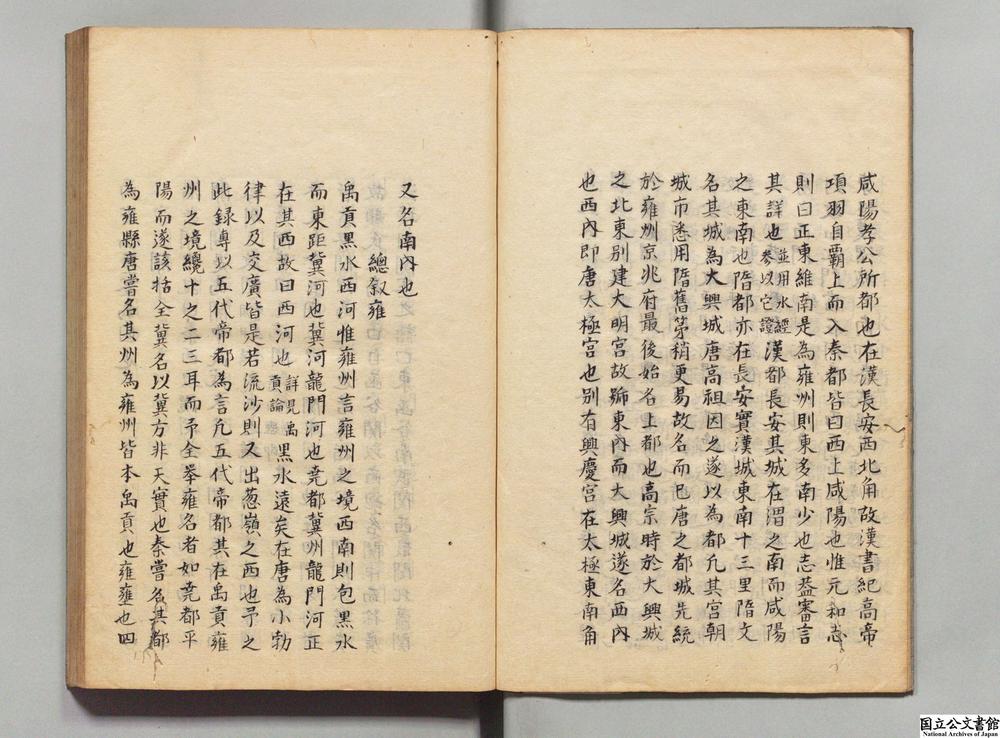 咸陽孝公所都也在漢長安西北角故漢書紀高帝
項羽自霸上而入秦都皆曰西上咸陽也惟元和志
則曰正東維南是為雍州則東多南少也志葢審言
其詳也並用水經參以它證漢都長安其城在渭之南而咸陽
之東南也隋都亦在長安實漢城東南十三里隋文
名其城為大興城唐高祖因之遂以為都凡其宮朝
城市悉用隋舊第稍更易故名而已唐之都城先統
於雍州京兆府最後始名上都也高宗時於大興城
之北東别建大明宮故號東內而大興城遂名西內
也西內即唐太極宮也别有興慶宮在太極東南角
又名南內也
總叙雍
禹貢黑水西河惟雍州言雍州之境西南則包黑水
而東距冀河也冀河龍門河也堯都冀州龍門河正
在其西故曰西河也詳見禹貢論黑水遠矣在唐為小勃
律以及交廣皆是若流沙則又出葱嶺之西也予之
此録專以五代帝都為言凡五代帝都其在禹貢雍
州之境纔十之二三耳而予全舉雍名者如堯都平
陽而遂該括全冀名以冀方非夭實也秦嘗名其都
為雍縣唐嘗名其州為雍州皆本禹貢也雍壅也四
国立公文書館
National Archives of Japan